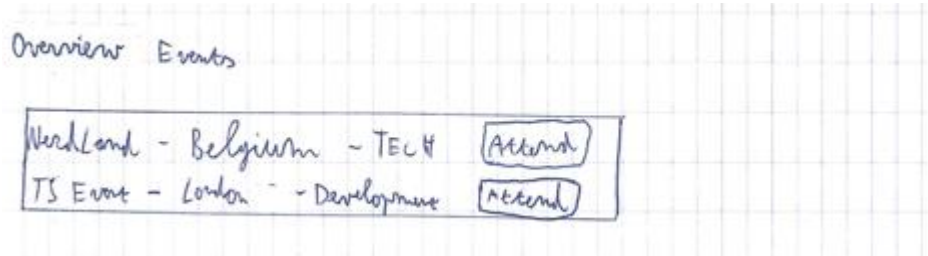 Overview Events
NerdLand - Belgium - TECH Attend
TS Event - London - Development Attend